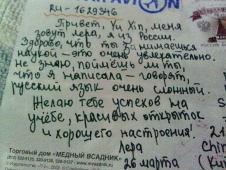 RU-1629346
Привет, Yu Xin, меня
зовут Лера, я из России.
Здорово, что ты занимаешься
наукой – это очень увлекательно.
Не знаю, поймёшь ли то,
что я написала – говорят,
русский язык очень сложный.
Желаю тебе успехов на
учёбе, красивых открыток
и хорошего настроения!
Лера
26 марта
Торговый дом «МЕДНЫЙ ВСАДНИК»